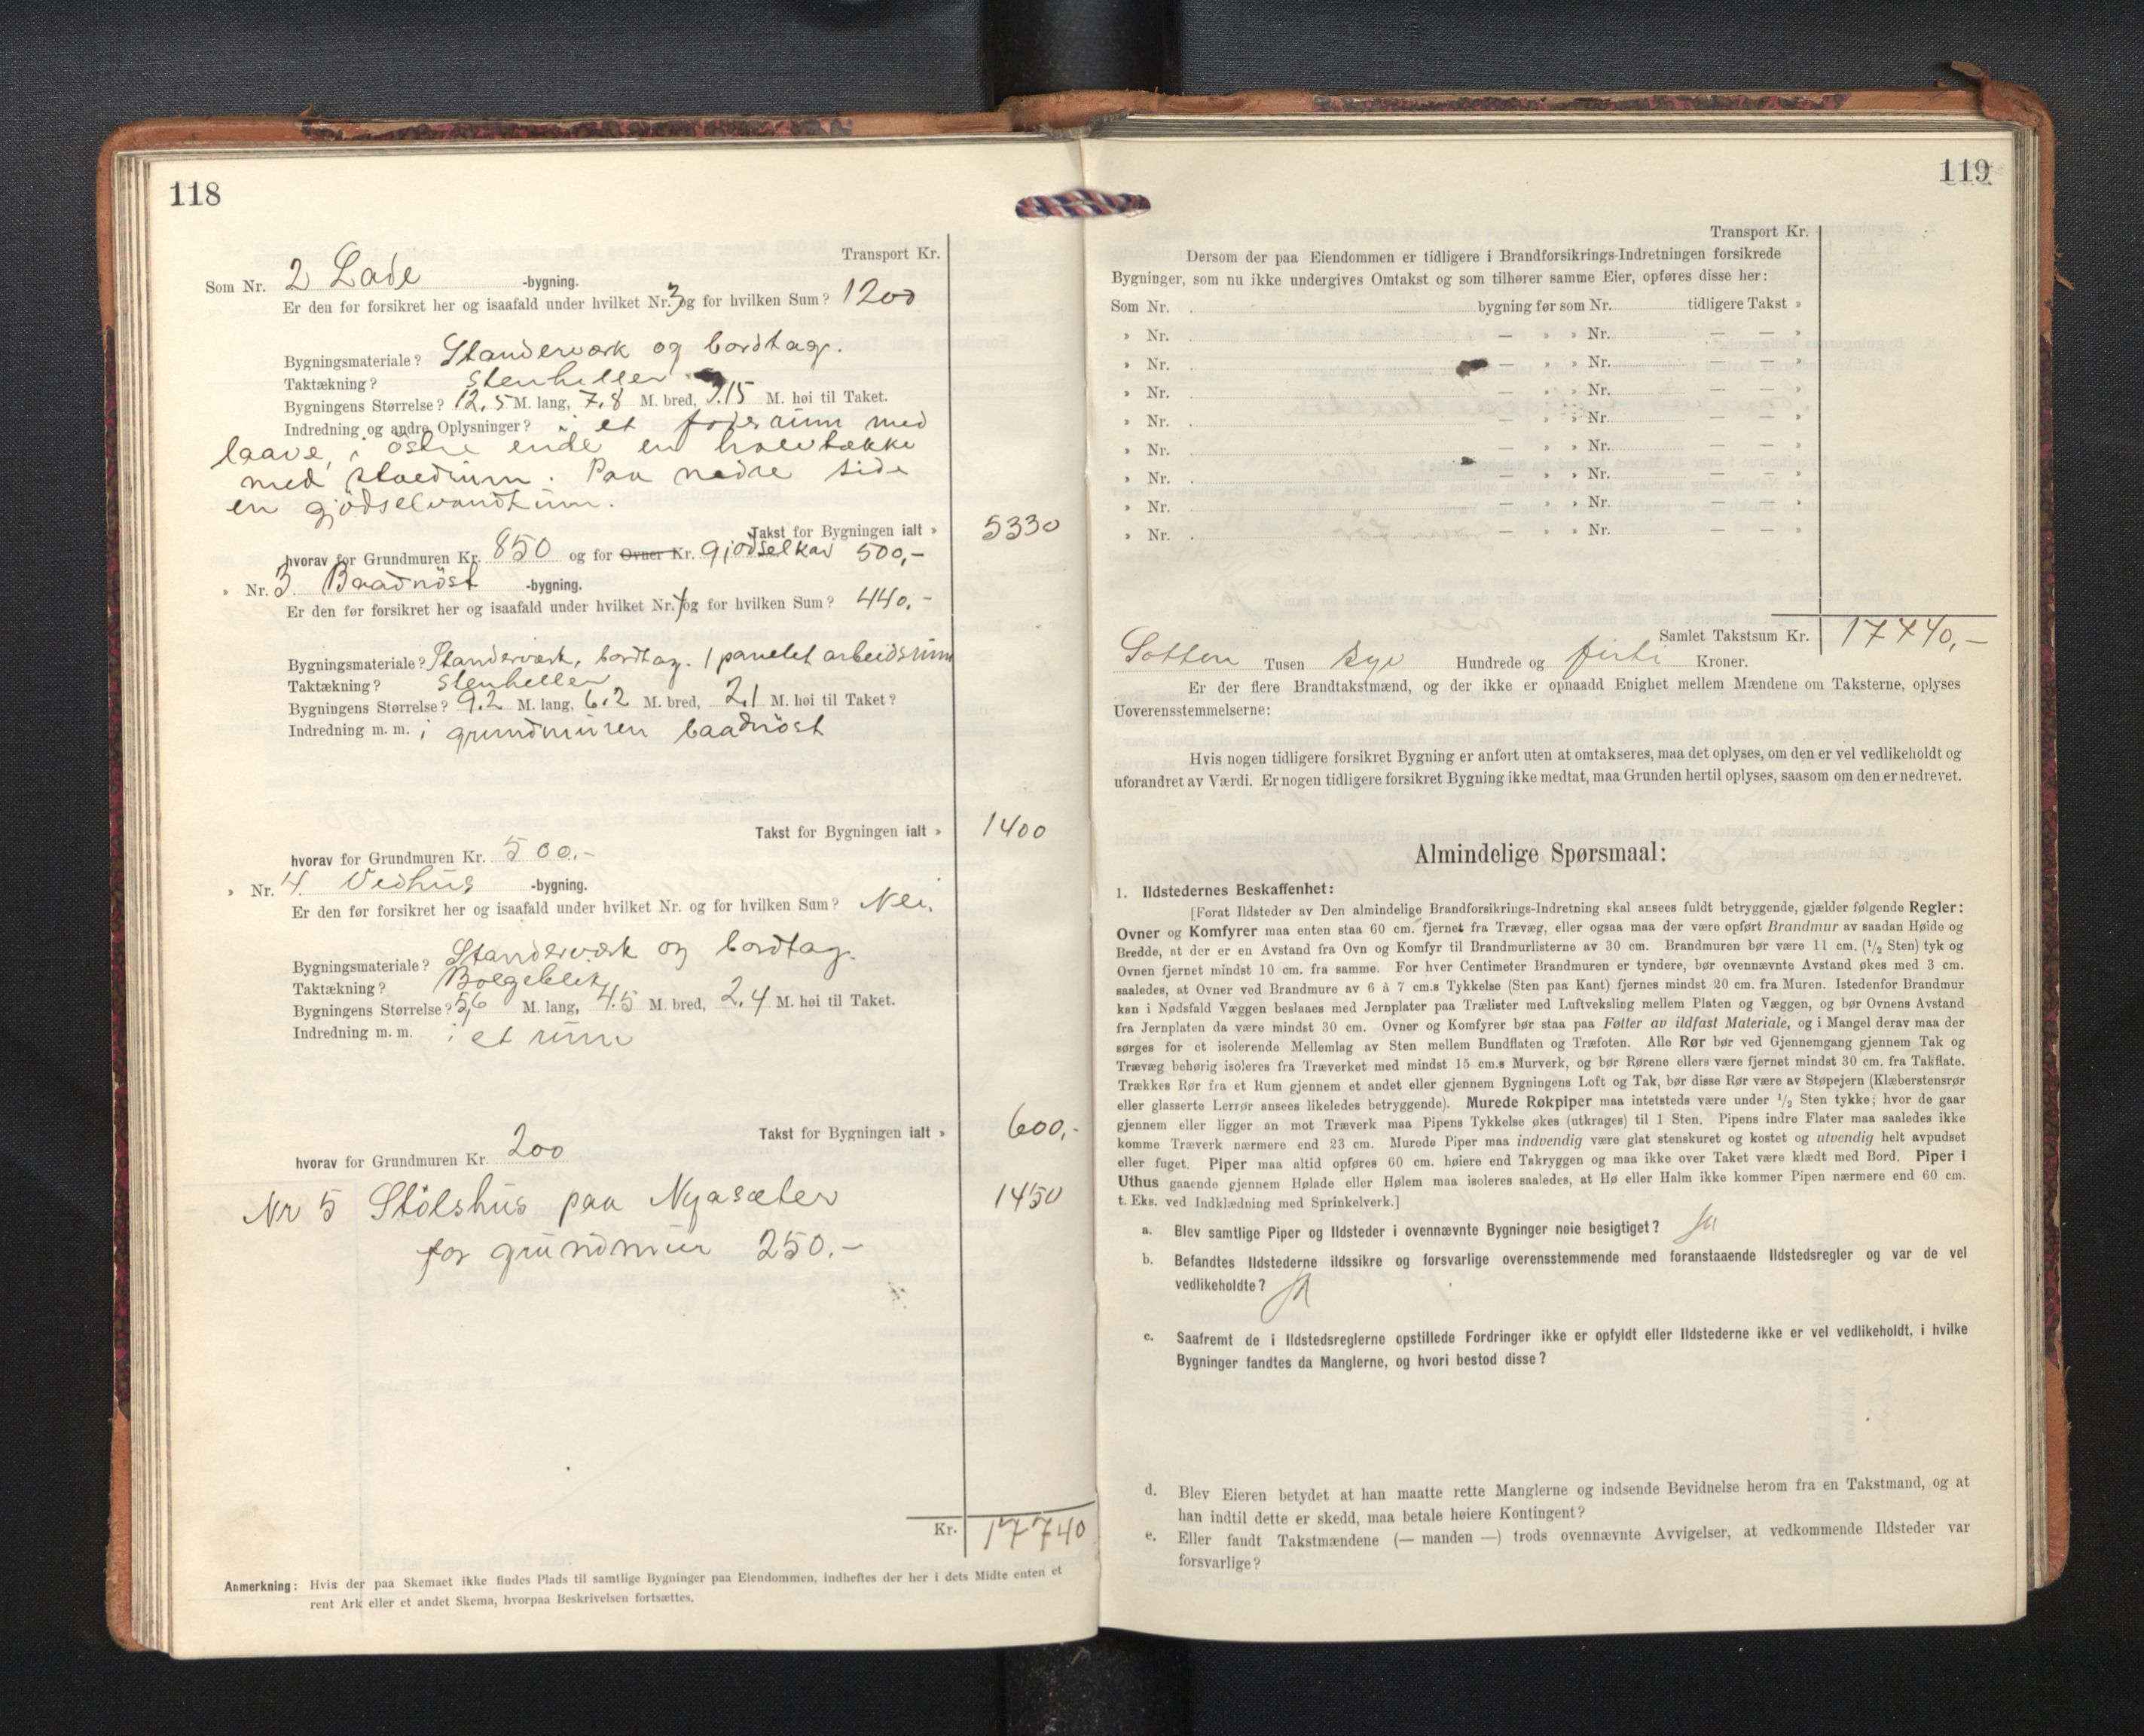 118
Transport Kr.
Som Nr. 2 Lade -bygning.
Er den før forsikret her og isaafald under hvilket Nr. 3 og for hvilken Sum? 1200
Bygningsmateriale? Standerværk og bordtag.
Taktækning? Stenheller
Bygningens Størrelse? 12,5 M. lang, 7,8 M. bred, 3.15 M. høi til Taket.
Indredning og andre Oplysninger? i et foderrum med
laave, i østre ende en
med Paa nedre side
en gjødselvandkum.
Takst for Bygningen ialt » 5330
hvorav for Grundmuren Kr. 850 og for Ovner Kr. gjødselkar 500,-
» Nr. 3. Baadnöst -bygning.
Er den før forsikret her og isaafald under hvilket Nr. og for hvilken Sum? 440,-
Bygningsmateriale? Standerværk, bordtag. 1 panelet arbeidsrum
Taktækning? Stenheller
Bygningens Størrelse? 9.2 M. lang, 6.2 M. bred, 2,1 M. høi til Taket?
Indredning m. m. i grundmuren baadnöst
Takst for Bygningen ialt » 1400
hvorav for Grundmuren Kr. 500.-
» Nr. 4. Vedhus -bygning.
Er den før forsikret her og isaafald under hvilket Nr. og for hvilken Sum? Nei.
Bygningsmateriale? Standerværk og bordtag.
Taktækning? Bølgeblik
Bygningens Størrelse? 5,6 M. lang, 4.5 M. bred, 2.4 M. høi til Taket.
Indredning m. m. i et rum
Takst for Bygningen ialt » 600,-
hvorav for Grundmuren Kr. 200
Nr 5 Stölshus paa Nyasæter 1450
for grundmur 250.-
Kr. 17740
Anmerkning: Hvis der paa Skemaet ikke findes Plads til samtlige Bygninger paa Eiendommen, indheftes der her i dets Midte enten et
rent Ark eller et andet Skema, hvorpaa Beskrivelsen fortsættes.
119
Transport Kr.
Dersom der paa Eiendommen er tidligere i Brandforsikrings-Indretningen forsikrede
Bygninger, som nu ikke undergives Omtakst og som tilhører samme Eier, opføres disse her:
Som Nr. bygning før som Nr. tidligere Takst »
» Nr. — » » Nr. — — »
» Nr. — » » Nr. — — »
» Nr. — » » Nr. — — »
» Nr. — » » Nr. — — »
» Nr. — » » Nr. — — »
» Nr. — » » Nr. — — »
» Nr. — » » Nr. — — »
» Nr. — » » Nr. — — »
Samlet Takstsum Kr. 17740,-
Sotten Tusen syv Hundrede og firti Kroner.
Er der flere Brandtakstmænd, og der ikke er opnaadd Enighet mellem Mændene om Taksterne, oplyses
Uoverensstemmelserne:
Hvis nogen tidligere forsikret Bygning er anført uten at omtakseres, maa det oplyses, om den er vel vedlikeholdt og
uforandret av Værdi. Er nogen tidligere forsikret Bygning ikke medtat, maa Grunden hertil oplyses, saasom om den er nedrevet.
Almindelige Spørsmaal:
1. Ildstedernes Beskaffenhet:
[Forat Ildsteder av Den almindelige Brandforsikrings-Indretning skal ansees fuldt betryggende, gjælder følgende Regler:
Ovner og Komfyrer maa enten staa 60 cm. fjernet fra Trævæg, eller ogsaa maa der være opført Brandmur av saadan Høide og
Bredde, at der er en Avstand fra Ovn og Komfyr til Brandmurlisterne av 30 cm. Brandmuren bør være 11 cm. (1/2 Sten) tyk og
Ovnen fjernet mindst 10 cm. fra samme. For hver Centimeter Brandmuren er tyndere, bør ovennævnte Avstand økes med 3 cm.
saaledes, at Ovner ved Brandmure av 6 à 7 cm.s Tykkelse (Sten paa Kant) fjernes mindst 20 cm. fra Muren. Istedenfor Brandmur
kan i Nødsfald Væggen beslaaes med Jernplater paa Trælister med Luftveksling mellem Platen og Væggen, og bør Ovnens Avstand
fra Jernplaten da være mindst 30 cm. Ovner og Komfyrer bør staa paa Føtter av ildfast Materiale, og i Mangel derav maa der
sørges for et isolerende Mellemlag av Sten mellem Bundflaten og Træfoten. Alle Rør bør ved Gjennemgang gjennem Tak og
Trævæg behørig isoleres fra Træverket med mindst 15 cm.s Murverk, og bør Rørene ellers være fjernet mindst 30 cm. fra Takflate.
Trækkes Rør fra et Rum gjennem et andet eller gjennem Bygningens Loft og Tak, bør disse Rør være av Støpejern (Klæberstensrør
eller glasserte Lerrør ansees likeledes betryggende). Murede Røkpiper maa intetsteds være under 1/2 Sten tykke; hvor de gaar
gjennem eller ligger an mot Træverk maa Pipens Tykkelse økes (utkrages) til 1 Sten. Pipens indre Flater maa saaledes ikke
komme Træverk nærmere end 23 cm. Murede Piper maa indvendig være glat stenskuret og kostet og utvendig helt avpudset
eller fuget. Piper maa altid opføres 60 cm. høiere end Takryggen og maa ikke over Taket være klædt med Bord. Piper i
Uthus gaaende gjennem Hølade eller Hølem maa isoleres saaledes, at Hø eller Halm ikke kommer Pipen nærmere end 60 cm.
t. Eks. ved Indklædning med Sprinkelverk.]
a. Blev samtlige Piper og Ildsteder i ovennævnte Bygninger nøie besigtiget? Ja
b. Befandtes Ildstederne ildssikre og forsvarlige overensstemmende med foranstaaende Ildstedsregler og var de vel
vedlikeholdte? Ja
c. Saafremt de i Ildstedsreglerne opstillede Fordringer ikke er opfyldt eller Ildstederne ikke er vel vedlikeholdt, i hvilke
Bygninger fandtes da Manglerne, og hvori bestod disse?
d. Blev Eieren betydet at han maatte rette Manglerne og indsende Bevidnelse herom fra en Takstmand, og at
han indtil dette er skedd, maa betale høiere Kontingent?
e. Eller fandt Takstmændene (— manden —) trods ovennævnte Avvigelser, at vedkommende Ildsteder var
forsvarlige?